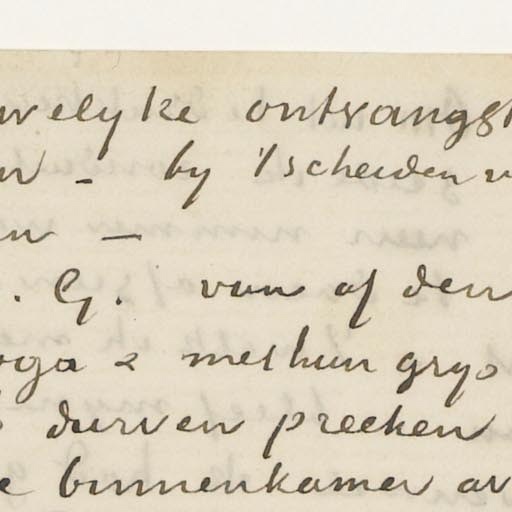 welyke ontvangst
by 'tscheiden v
. G. van af den
oga & methun gryo
durven preeken
binnenkamer av